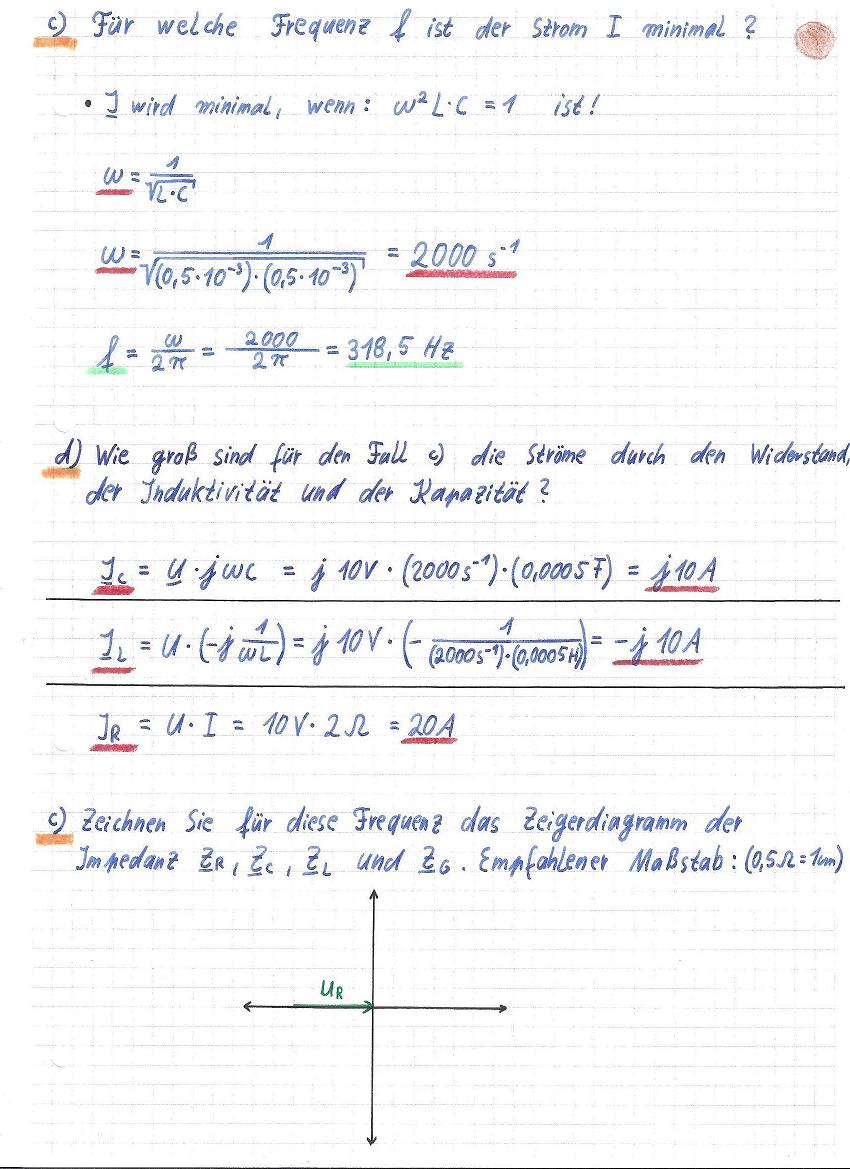 c) Für welche Frequenz f ist der Strom I minimal?
• I wird minimal, wenn: ω²L·C = 1 ist!
ω = 1/√(L·C)
ω = 1/√((0,5·10⁻³)·(0,5·10⁻³)) = 2000 s⁻¹
f = ω/2π = 2000/2π = 318,5 Hz
d) Wie groß sind für den Fall c) die Ströme durch den Widerstand,
der Induktivität und der Kapazität?
I_C = U · jωC = j 10V · (2000s⁻¹)·(0,0005F) = j10A
I_L = U · (-j 1/ωL) = j 10V · (- 1/((2000s⁻¹)·(0,0005H))) = -j 10A
I_R = U · I = 10V · 2Ω = 20A
c) Zeichnen Sie für diese Frequenz das Zeigerdiagramm der
Impedanz Z_R, Z_C, Z_L und Z_G. Empfahlener Maßstab: (0,5Ω=1cm)
U_R